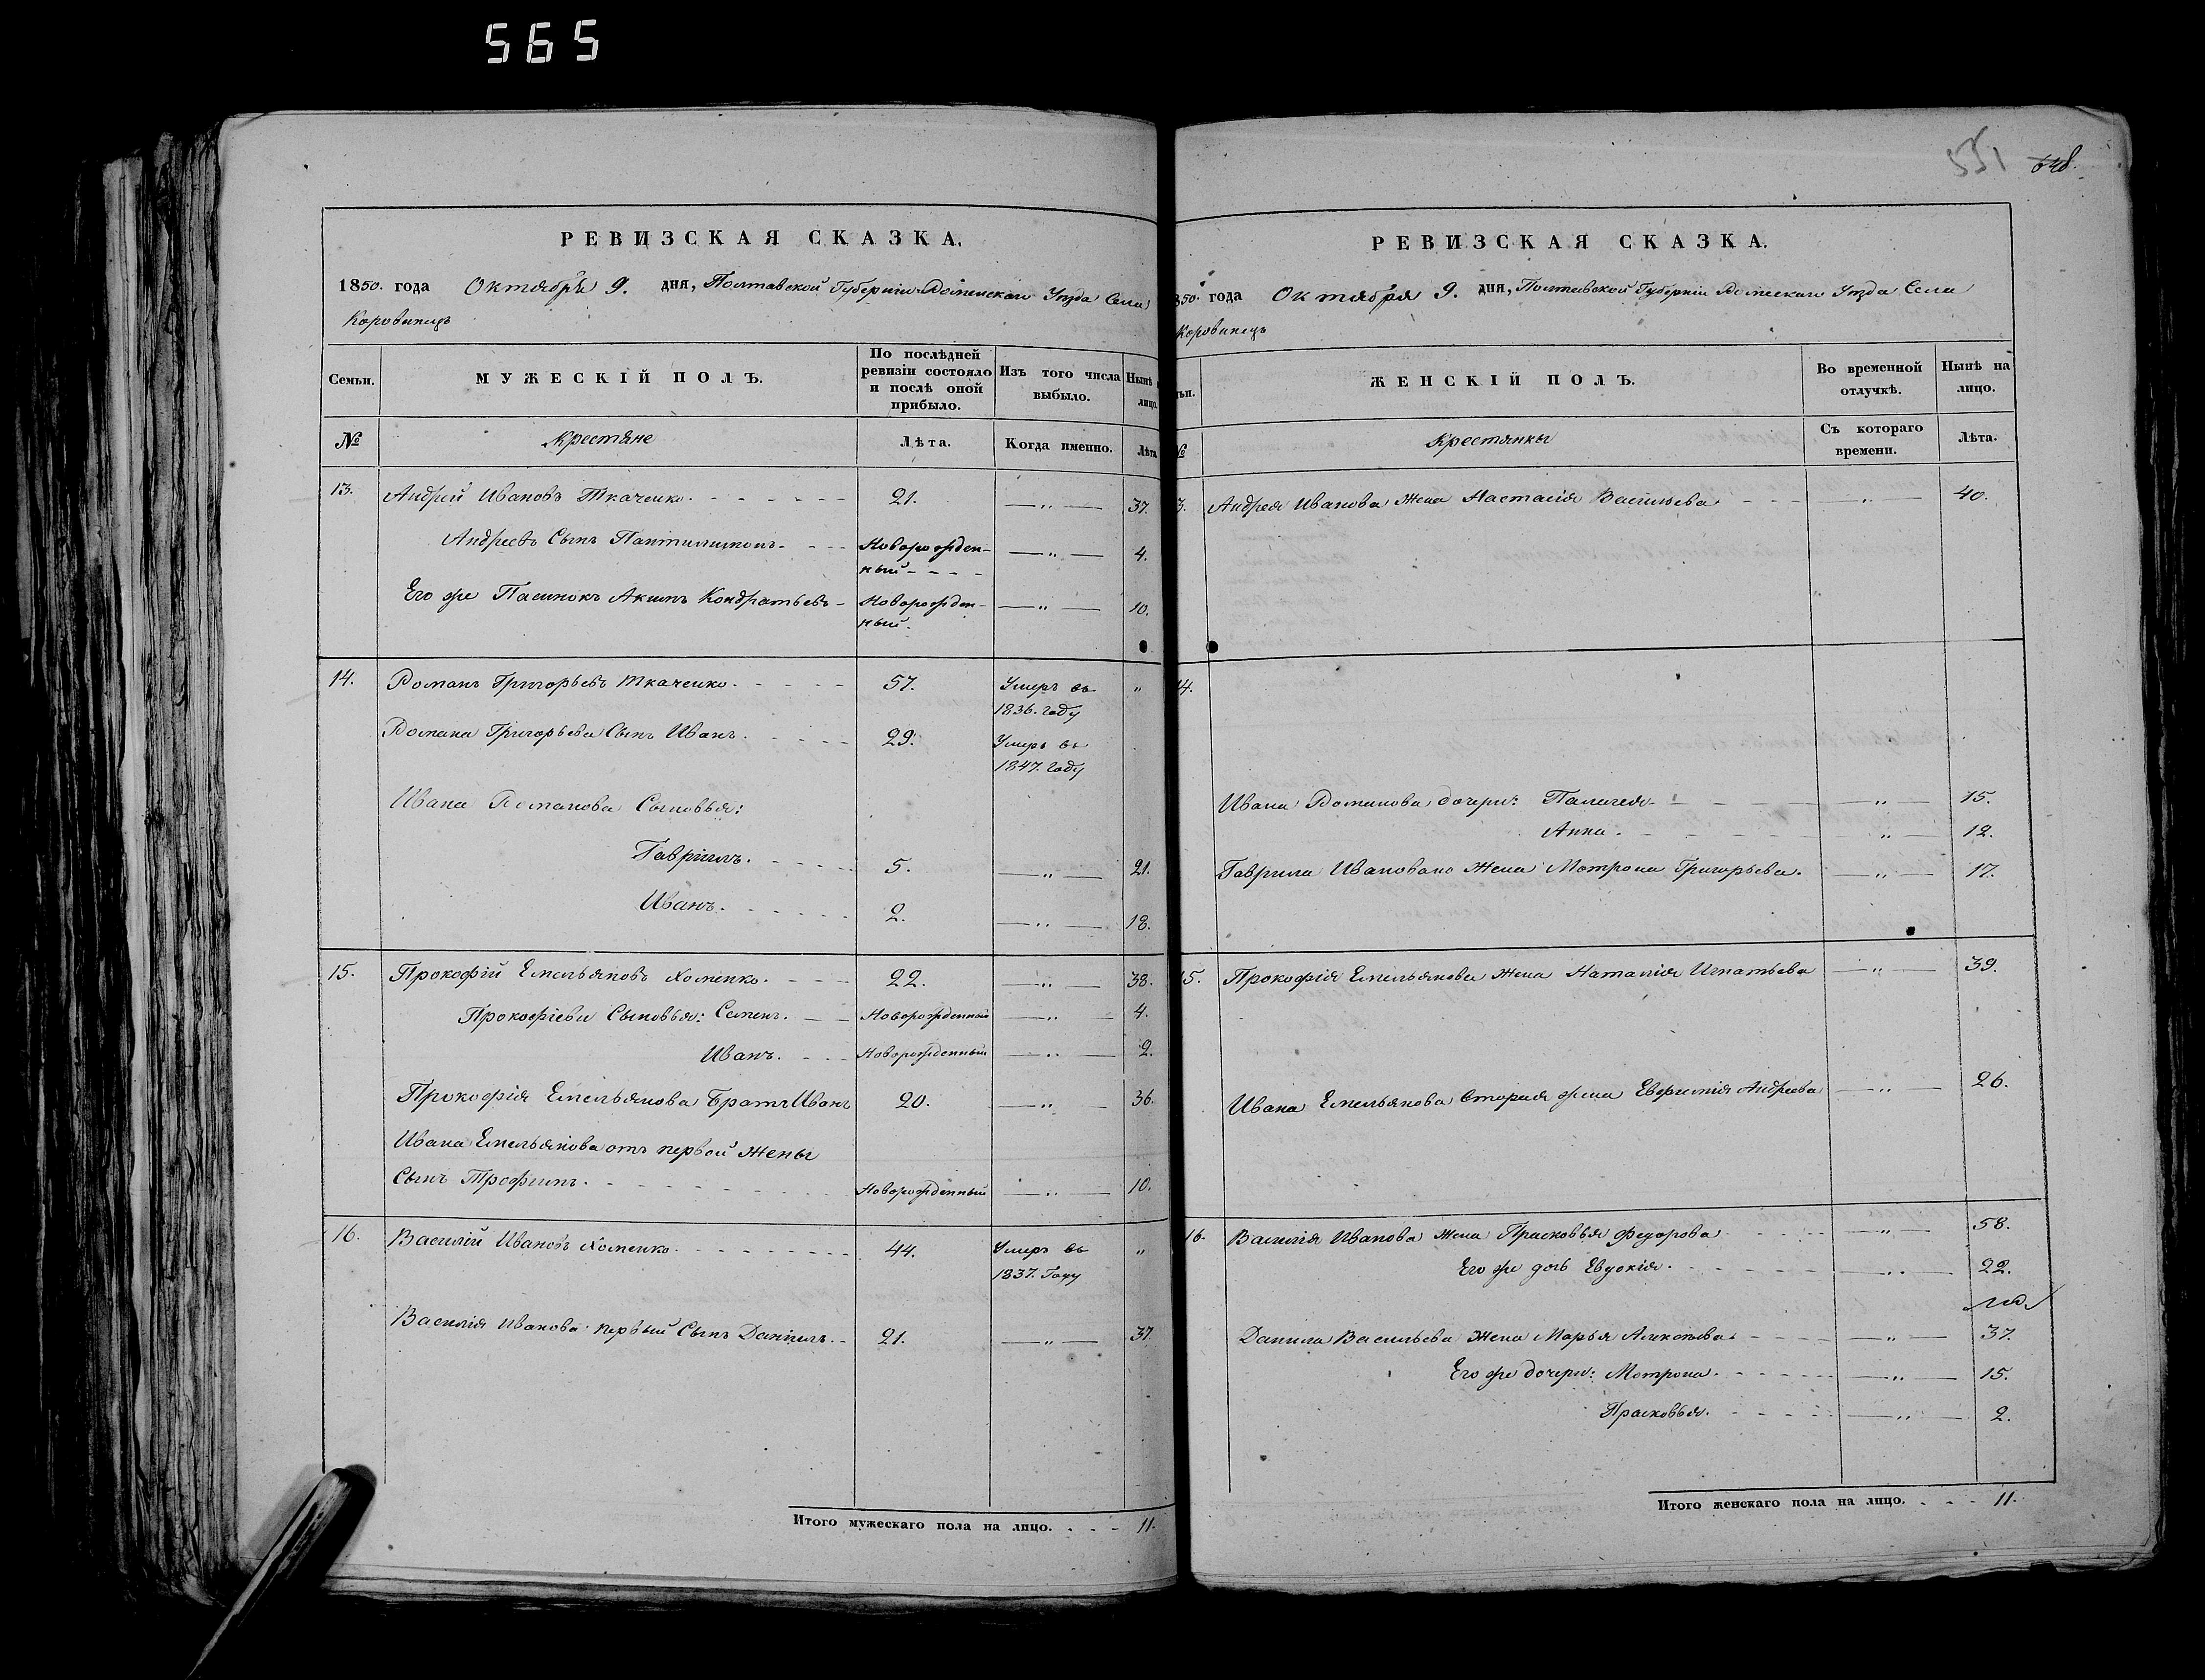 565
551 548.
РЕВИЗСКАЯ СКАЗКА.
1850. года Октября 9. дня, Полтавской Губерніи Роменскаго Уѣзда Села
Коровинецъ
Семьи.
МУЖЕСКІЙ ПОЛЪ.
По послѣдней
ревизіи состояло
и послѣ оной
прибыло.
Изъ того числа
выбыло.
Нынѣ
лицо.
№
Крестьяне
Лѣта.
Когда именно.
Лѣта
13. Андрей Ивановъ Ткаченко. 21. — „ — 37.
Андреевъ Сынъ Пантилимонъ. Новорожден- — „ — 4.
ный
Его же Пасинокъ Акимъ Кондратьевъ Новорожден- — „ — 10.
ный.
14. Романъ Григорьевъ Ткаченко. 57. Умеръ въ „
1836. году
Романа Григорьева Сынъ Иванъ. 29. Умеръ въ
1847. году
Ивана Романова Сыновья:
Гавріилъ. 5. — „ — 21.
Иванъ. 2. — „ — 18.
15. Прокофій Емельяновъ Хоменко. 22. — „ — 38.
Прокофіевы Сыновья: Семенъ. Новорожденный — „ — 4.
Иванъ. Новорожденный — „ — 2.
Прокофія Емельянова Братъ Иванъ 20. — „ — 36.
Ивана Емельянова отъ первой жены
Сынъ Трофимъ. Новорожденный — „ — 10.
16. Василій Ивановъ Хоменко. 44. Умеръ въ „
1837. Году
Василія Иванова первый Сынъ Даніилъ. 21. — „ — 37.
Итого мужескаго пола на лицо. 11.
РЕВИЗСКАЯ СКАЗКА.
850. года Октября 9. дня, Полтавской Губерніи Роменскаго Уѣзда Села
Коровинецъ
ьи.
ЖЕНСКІЙ ПОЛЪ.
Во временной
отлучкѣ.
Нынѣ на
лицо.
№
Крестянки
Съ котораго
времени.
Лѣта.
3. Андрея Иванова жена Настасія Васильева — „ — 40.
14.
Ивана Романова дочери: Палагея. — „ — 15.
Анна. „ — 12.
Гаврила Иванованo Жена Мотрона Григорьева. — „ — 17.
15. Прокофія Емельянова жена Наталія Игнатьева — „ — 39.
Ивана Емельянова вторая жена Евфимія Андреева — „ — 26.
16. Василія Иванова жена Прасковья Федорова — „ — 58.
Его же дочь Евдокія. — „ — 22.
Данила Васильева жена Марья Алексѣева. — „ — 37.
Его же дочери: Мотрона. — „ — 15.
Прасковья. — „ — 2.
Итого женскаго пола на лицо. 11.